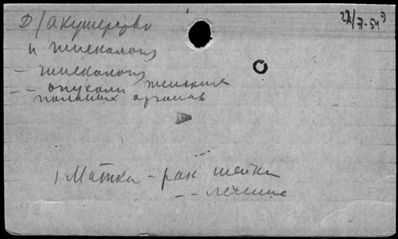 Д/акушерство
и гинекология
22/7-54 г
- гинекология
- - опухоли женских
половых органов
1. Матка - рак шейки
- - лечение